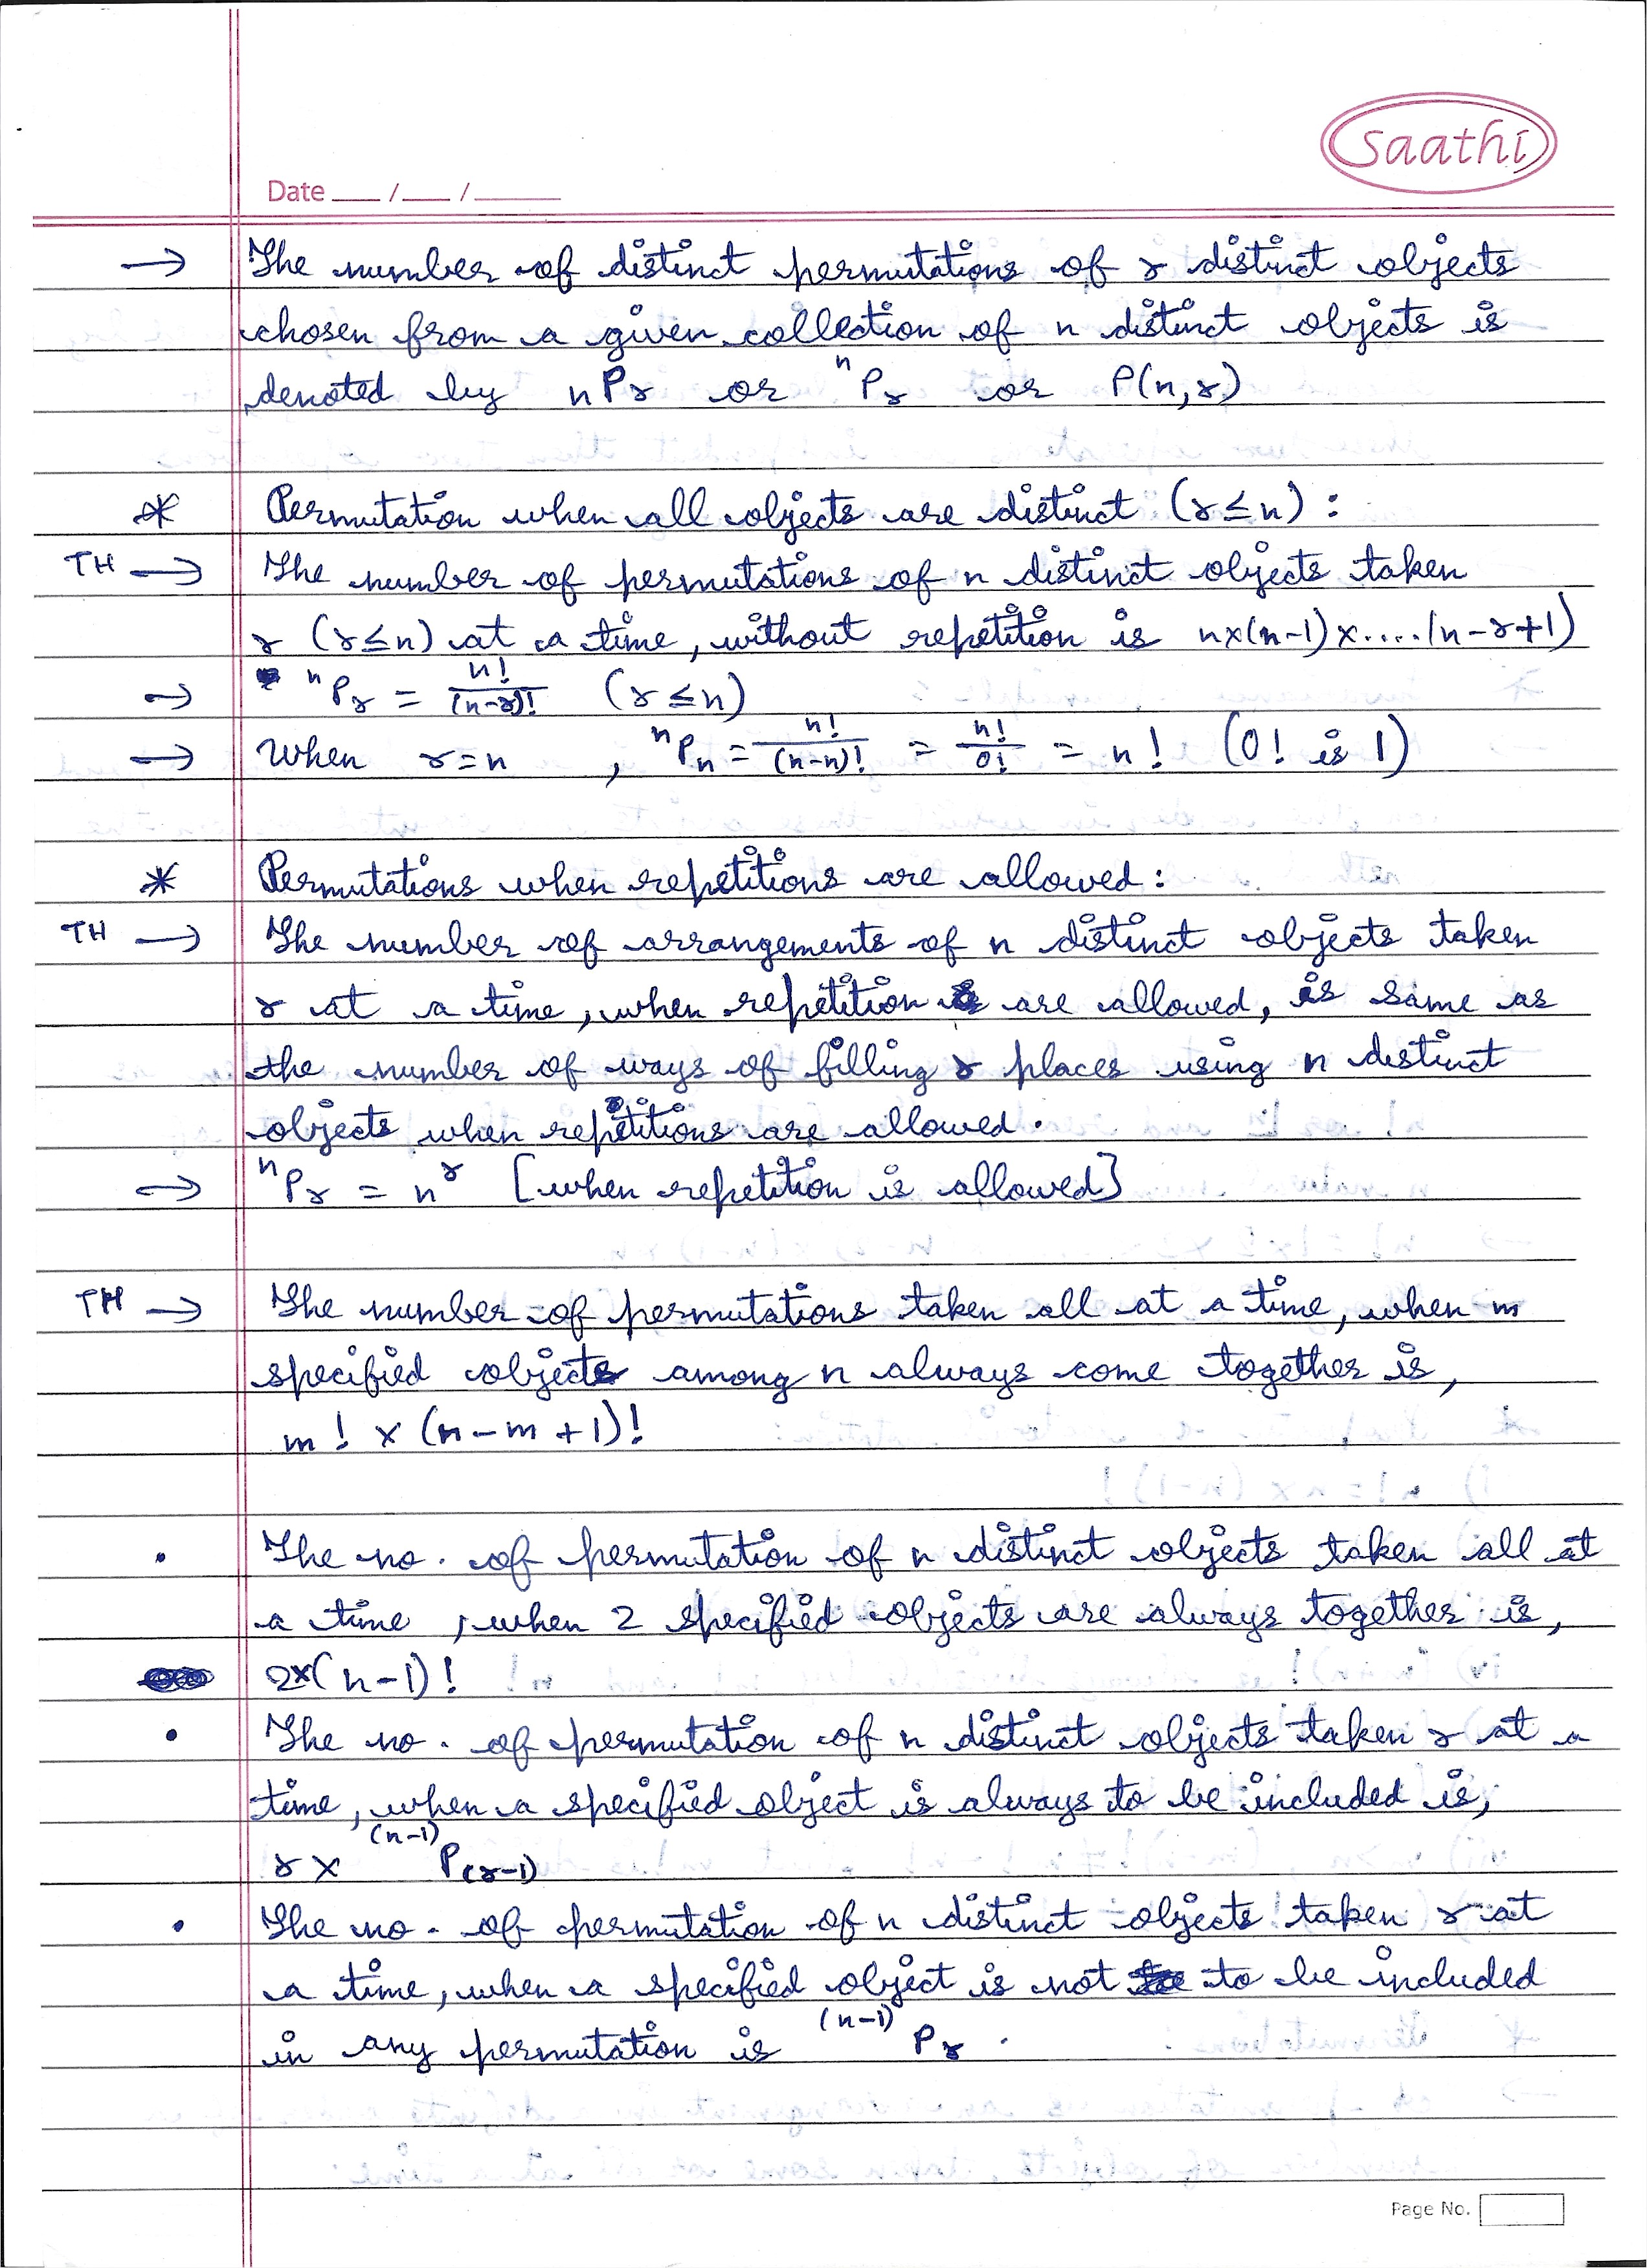 saathi
Date ___/___/_____
→ The number of distinct permutations of r distinct objects
chosen from a given collection of n distinct objects is
denoted by nPr or ⁿPᵣ or P(n,r)
* Permutation when all objects are distinct (r≤n) :
TH → The number of permutations of n distinct objects taken
r (r≤n) at a time, without repetition is n×(n-1)×....(n-r+1)
→ ⁿPᵣ = n!/(n-r)! (r≤n)
→ When r=n , ⁿPₙ = n!/(n-n)! = n!/0! = n! (0! is 1)
* Permutations when repetitions are allowed :
TH → The number of arrangements of n distinct objects taken
r at a time, when repetition are allowed, is same as
the number of ways of filling r places using n distinct
objects when repetitions are allowed.
→ ⁿPᵣ = nʳ [when repetition is allowed]
TH → The number of permutations taken all at a time, when m
specified objects among n always come together is,
m! × (n-m+1)!
• The no. of permutation of n distinct objects taken all at
a time, when 2 specified objects are always together is,
2×(n-1)!
• The no. of permutation of n distinct objects taken r at a
time, when a specified object is always to be included is,
r × ⁽ⁿ⁻¹⁾P₍ᵣ₋₁₎
• The no. of permutation of n distinct objects taken r at
a time, when a specified object is not to be included
in any permutation is ⁽ⁿ⁻¹⁾Pᵣ.
Page No.